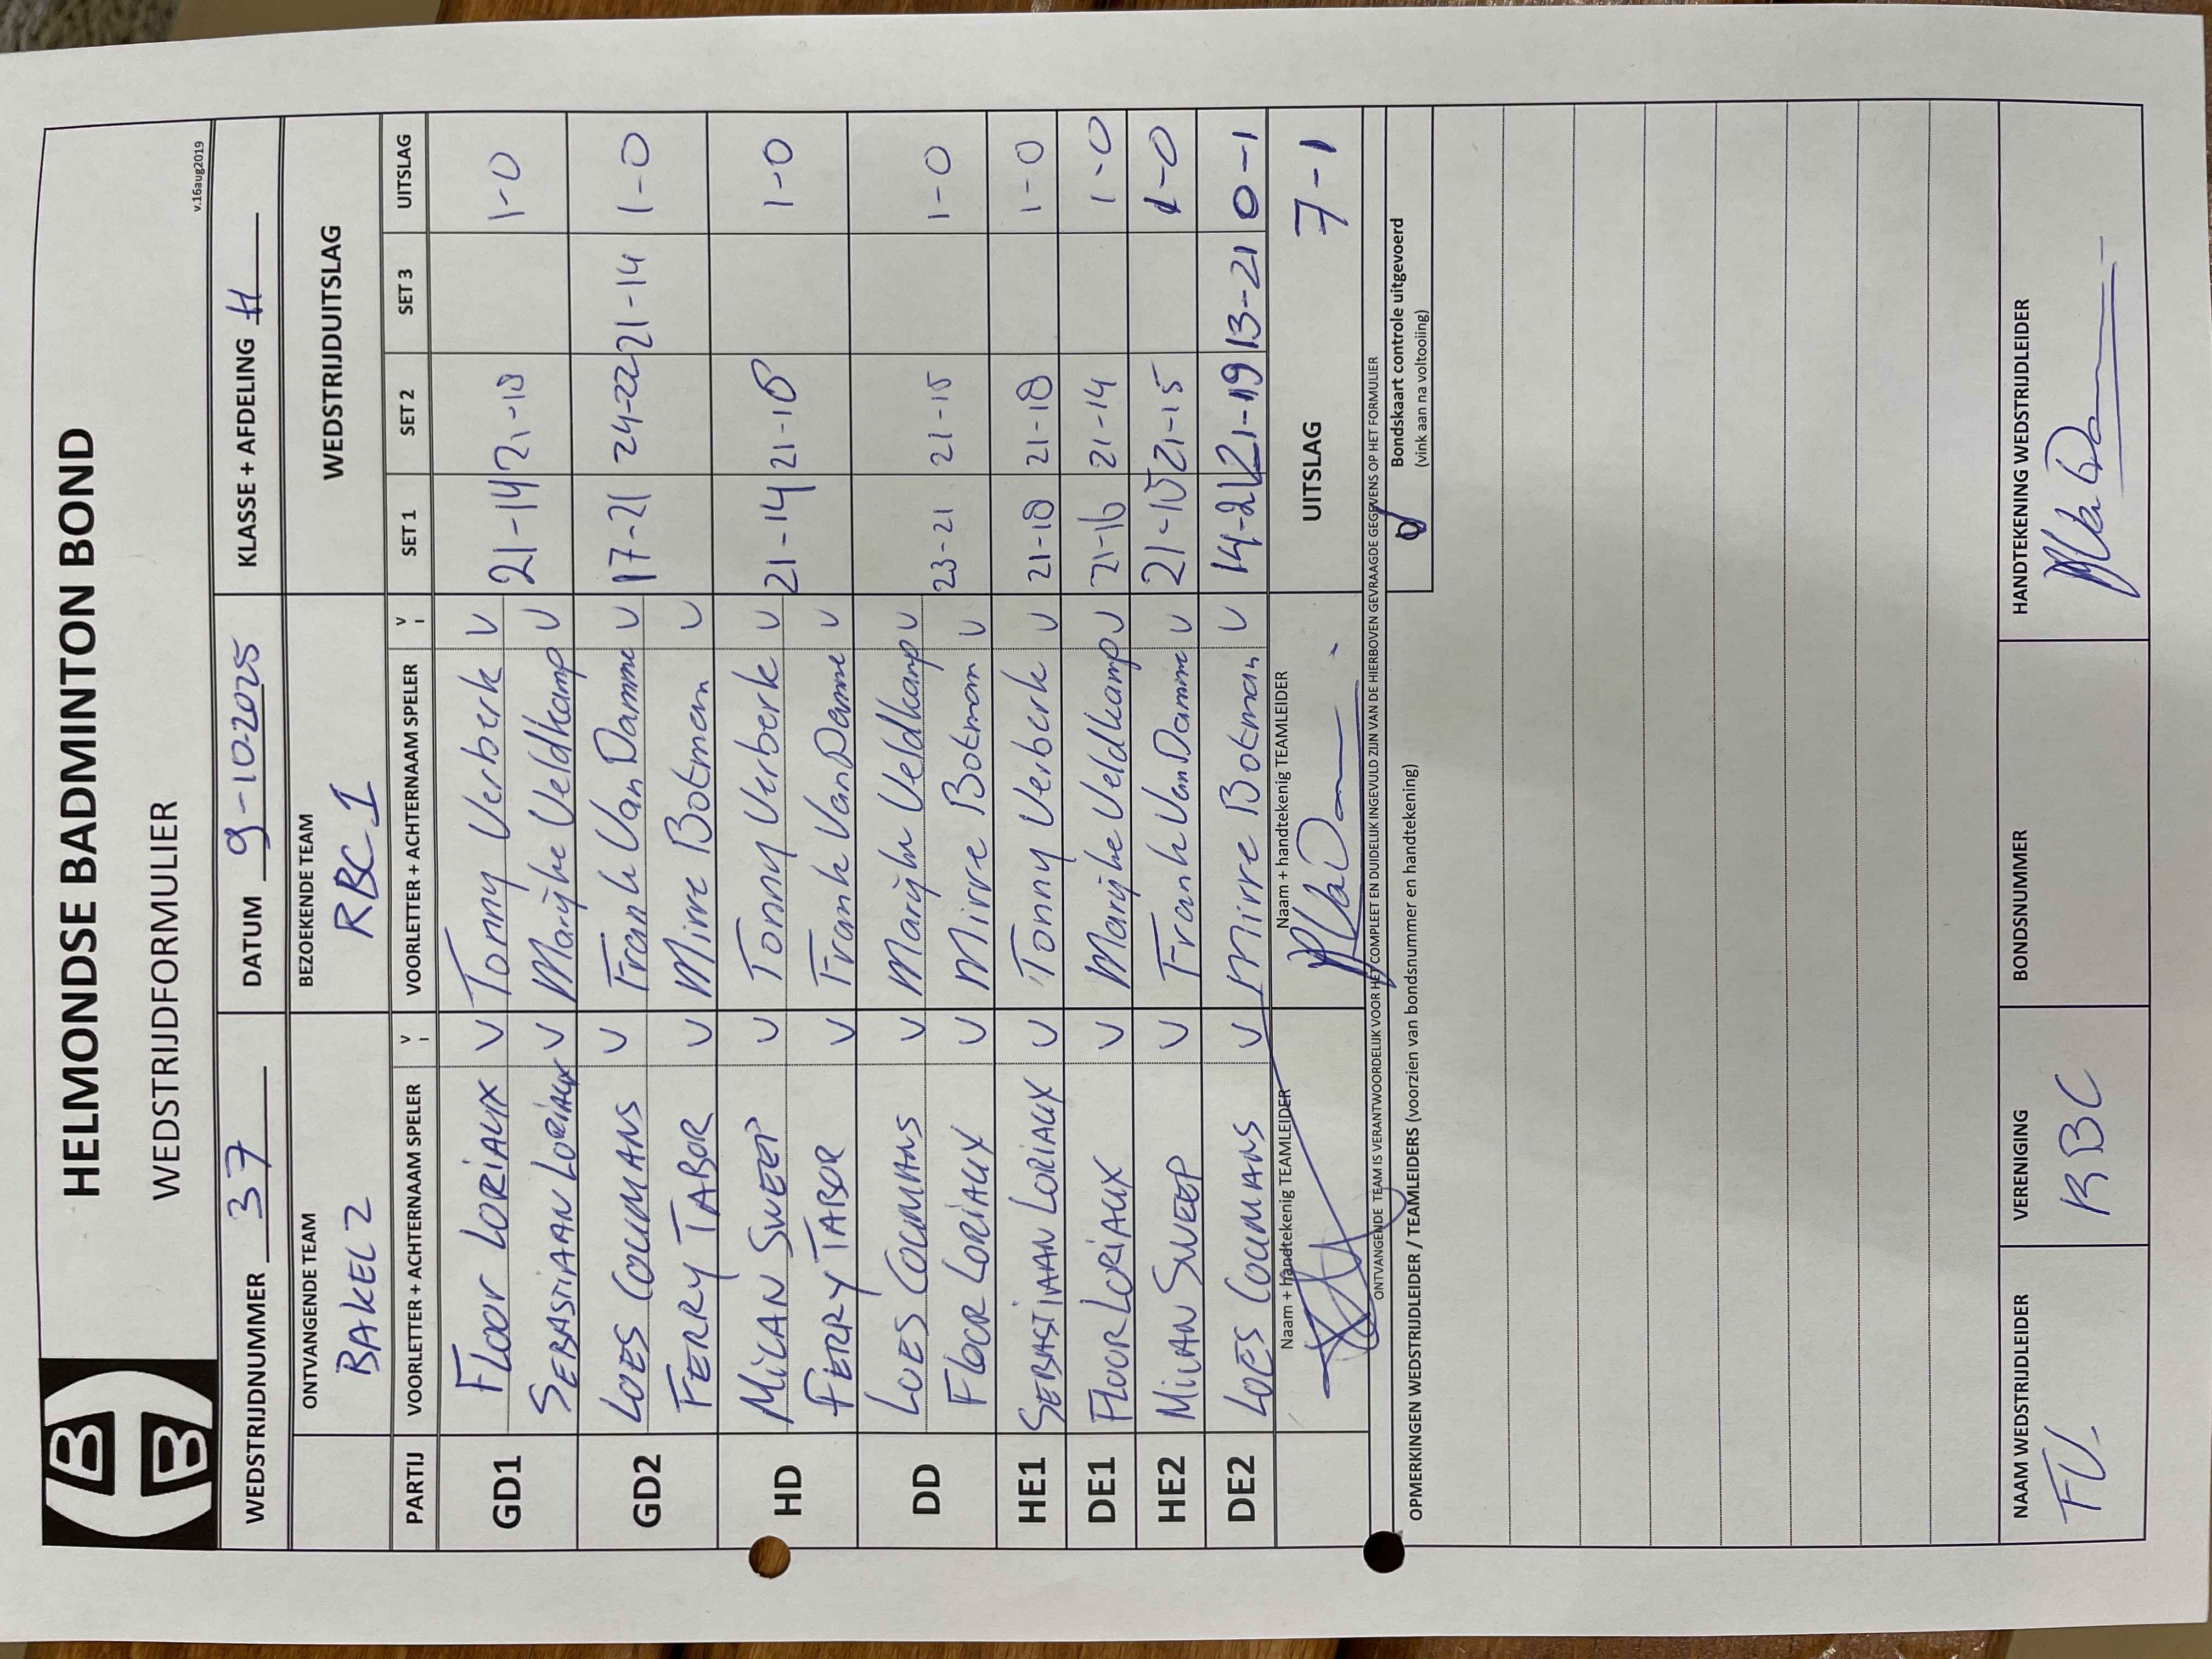 HELMONDSE BADMINTON BOND
WEDSTRIJDFORMULIER
v.16aug2019
WEDSTRIJDNUMMER 37 DATUM 9-10-2025 KLASSE + AFDELING H
ONTVANGENDE TEAM BEZOEKENDE TEAM WEDSTRIJDUITSLAG
BAKEL 2 RBC 1
PARTIJ VOORLETTER + ACHTERNAAM SPELER V VOORLETTER + ACHTERNAAM SPELER V SET 1 SET 2 SET 3 UITSLAG
GD1 FLOOR LORIAUX V Tonny Verberk V 21-14 21-18 1-0
SEBASTIAAN LORIAUX V Marijke Veldkamp V
GD2 LOES COUMANS V Frank Van Damme V 17-21 24-22 21-14 1-0
FERRY TABOR V Mirre Botman V
HD MILAN SWEEP V Tonny Verberk V 21-14 21-18 1-0
FERRY TABOR V Frank Van Damme V
DD LOES COUMANS V Marijke Veldkamp V 23-21 21-15 1-0
FLOOR LORIAUX V Mirre Botman V
HE1 SEBASTIAAN LORIAUX V Tonny Verberk V 21-18 21-18 1-0
DE1 FLOOR LORIAUX V Marijke Veldkamp V 21-16 21-14 1-0
HE2 MILAN SWEEP V Frank Van Damme V 21-15 21-15 1-0
DE2 LOES COUMANS V Mirre Botman V 14-21 21-19 13-21 0-1
Naam + handtekenig TEAMLEIDER Naam + handtekenig TEAMLEIDER UITSLAG 7-1
ONTVANGENDE TEAM IS VERANTWOORDELIJK VOOR HET COMPLEET EN DUIDELIJK INGEVULD ZIJN VAN DE HIERBOVEN GEVRAAGDE GEGEVENS OP HET FORMULIER
OPMERKINGEN WEDSTRIJDLEIDER / TEAMLEIDERS (voorzien van bondsnummer en handtekening)
Bondskaart controle uitgevoerd
(vink aan na voltooiing)
NAAM WEDSTRIJDLEIDER VERENIGING BONDSNUMMER HANDTEKENING WEDSTRIJDLEIDER
RBC